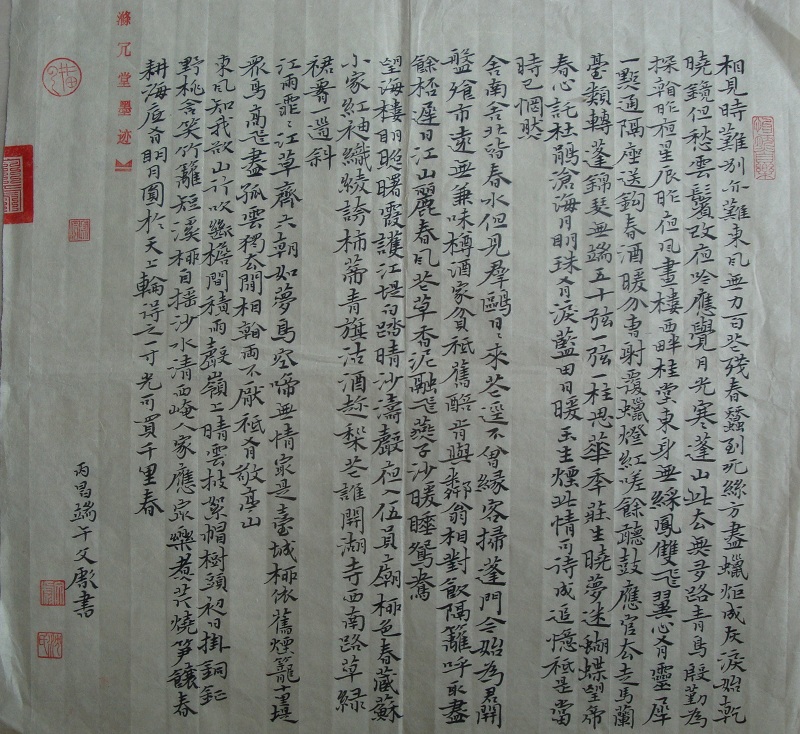 相見時難別亦難東風無力百花殘春蠶到死絲方盡蠟炬成灰淚始乾
曉鏡但愁雲鬢改夜吟應覺月光寒蓬山此去無多路青鳥殷勤為
探看昨夜星辰昨夜風畫樓西畔桂堂東身無綵鳳雙飛翼心有靈犀
一點通隔座送鈎春酒暖分曹射覆蠟燈紅嗟餘聽鼓應官去走馬蘭
臺類轉蓬錦瑟無端五十弦一弦一柱思華年莊生曉夢迷蝴蝶望帝
春心託杜鵑滄海月明珠有淚藍田日暖玉生煙此情可待成追憶祗是當
時已惘然
舍南舍北皆春水但見羣鷗日日來花逕不曾緣客掃蓬門今始為君開
盤飧市遠無兼味樽酒家貧祗舊醅肯與鄰翁相對飲隔籬呼取盡
餘杯遲日江山麗春風花草香泥融飛燕子沙暖睡鴛鴦
望海樓明照曙霞護江堤白踏晴沙濤聲夜入伍員廟柳色春藏蘇
小家紅袖織綾誇柿蒂青旗沽酒趁梨花誰開湖寺西南路草綠
裙腰一道斜
江雨霏霏江草齊六朝如夢鳥空啼無情最是臺城柳依舊煙籠十里堤
衆鳥高飛盡孤雲獨去閒相看兩不厭祗有敬亭山
東風知我欲山行吹斷檐間積雨聲嶺上晴雲披絮帽樹頭初日掛銅鉦
野桃含笑竹籬短溪柳自搖沙水清西崦人家應最樂煮芹燒筍饟春
耕海底有明月圓於天上輪得之一寸光可買千里春
端午文書
滌冗堂墨迹